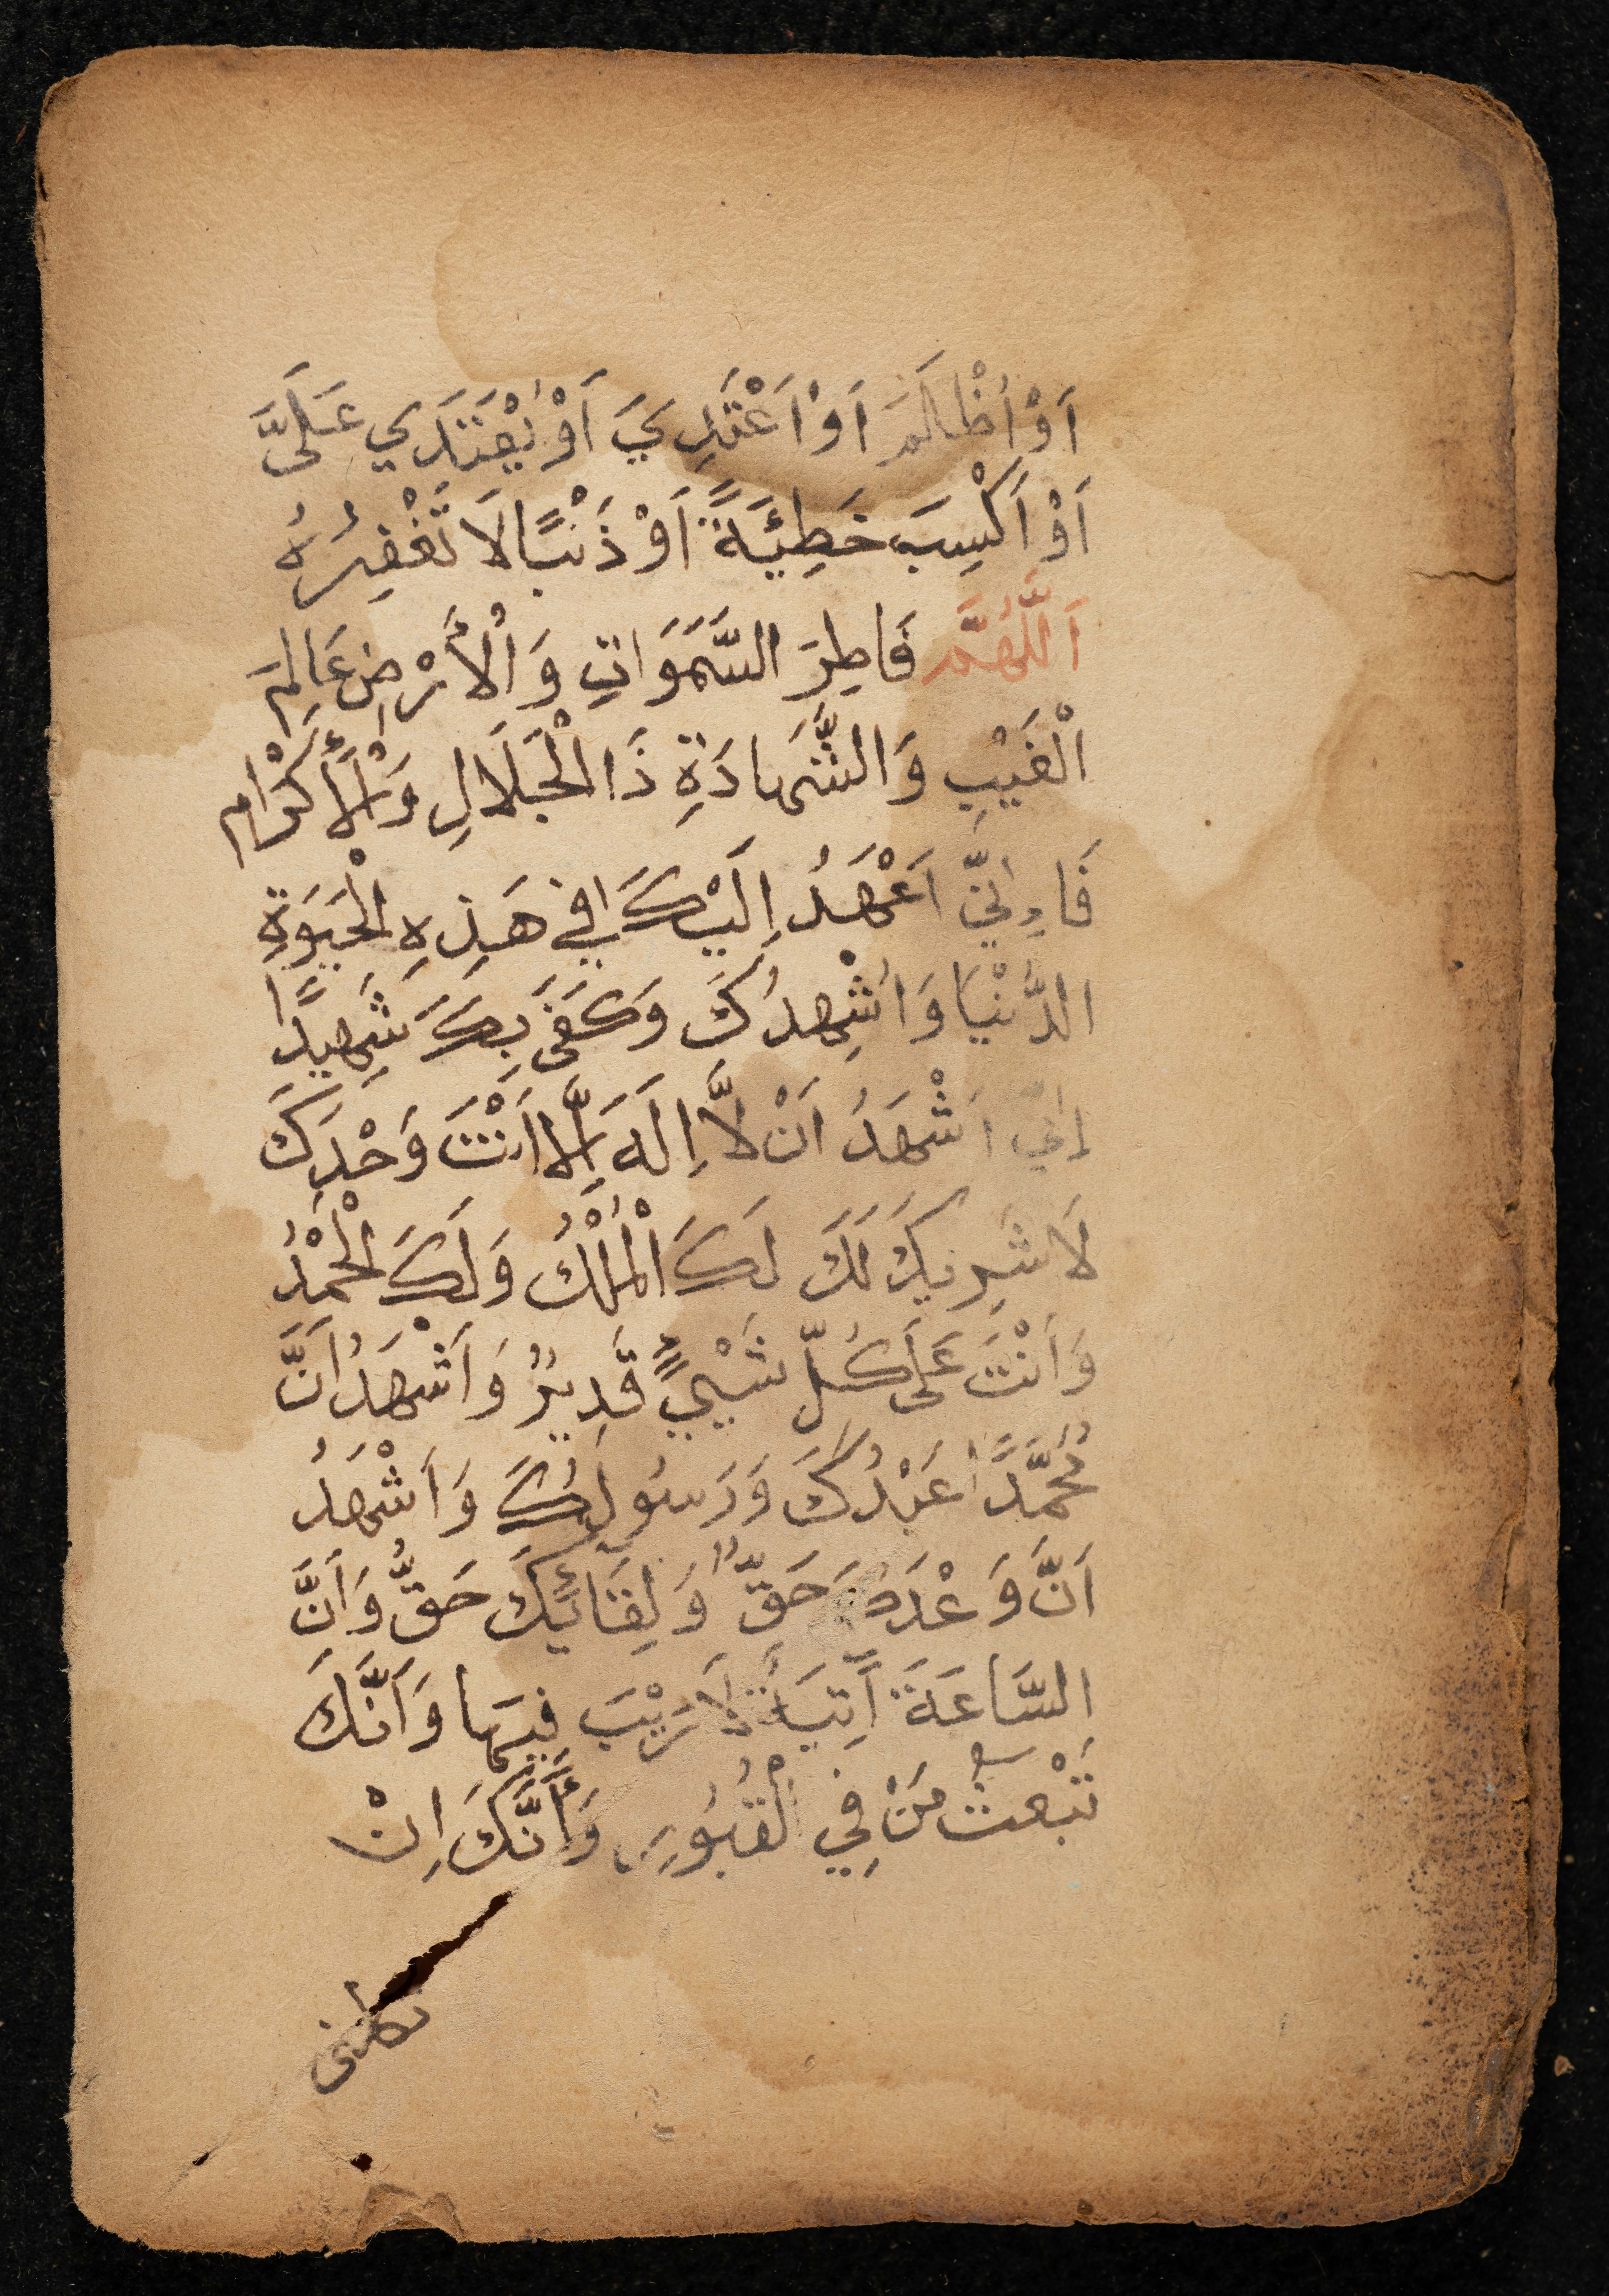 اَوْ اُظْلَمَ اَوْ اَعْتَدِيَ اَوْ يُعْتَدَي عَلَىَّ
اَوْ اَكْسِبَ خَطِيْئَةً اَوْ ذَنْبًا لَا تَغْفِرُهُ
اَللَّهُمَّ فَاطِرَ السَّمَوَاتِ وَالْأَرْضِ عَالِمَ
الْغَيْبِ وَالشَّهَادَةِ ذَا الْجَلَالِ وَالْأِكْرَام
فَاِنِّي اَعْهَدُ اِلَيْكَ فِي هَذِهِ الْحَيَوةِ
الدُّنْيَا وَاُشْهِدُكَ وَكَفَى بِكَ شَهِيدًا
اِنِّي اَشْهَدُ اَنْ لَّا اِلَهَ اِلَّا اَنْتَ وَحْدَكَ
لَا شَرِيكَ لَكَ لَكَ الْمُلْكُ وَلَكَ الْحَمْدُ
وَاَنْتَ عَلَى كُلِّ شَيْيءٍ قَدِيرٌ وَاَشْهَدُ اَنَّ
مُحَمَّدًا عَبْدُكَ وَرَسُولُكَ وَاَشْهَدُ
اَنَّ وَعْدَكَ حَقٌّ وَلِقَائَكَ حَقٌّ وَاَنَّ
السَّاعَةَ اَتِيَةٌ لَا رَيْبَ فِيهَا وَاَنَّكَ
تَبْعثُ مَنْ فِي الْقُبُورِ وَأَنَّكَ اِنْ
تكلني